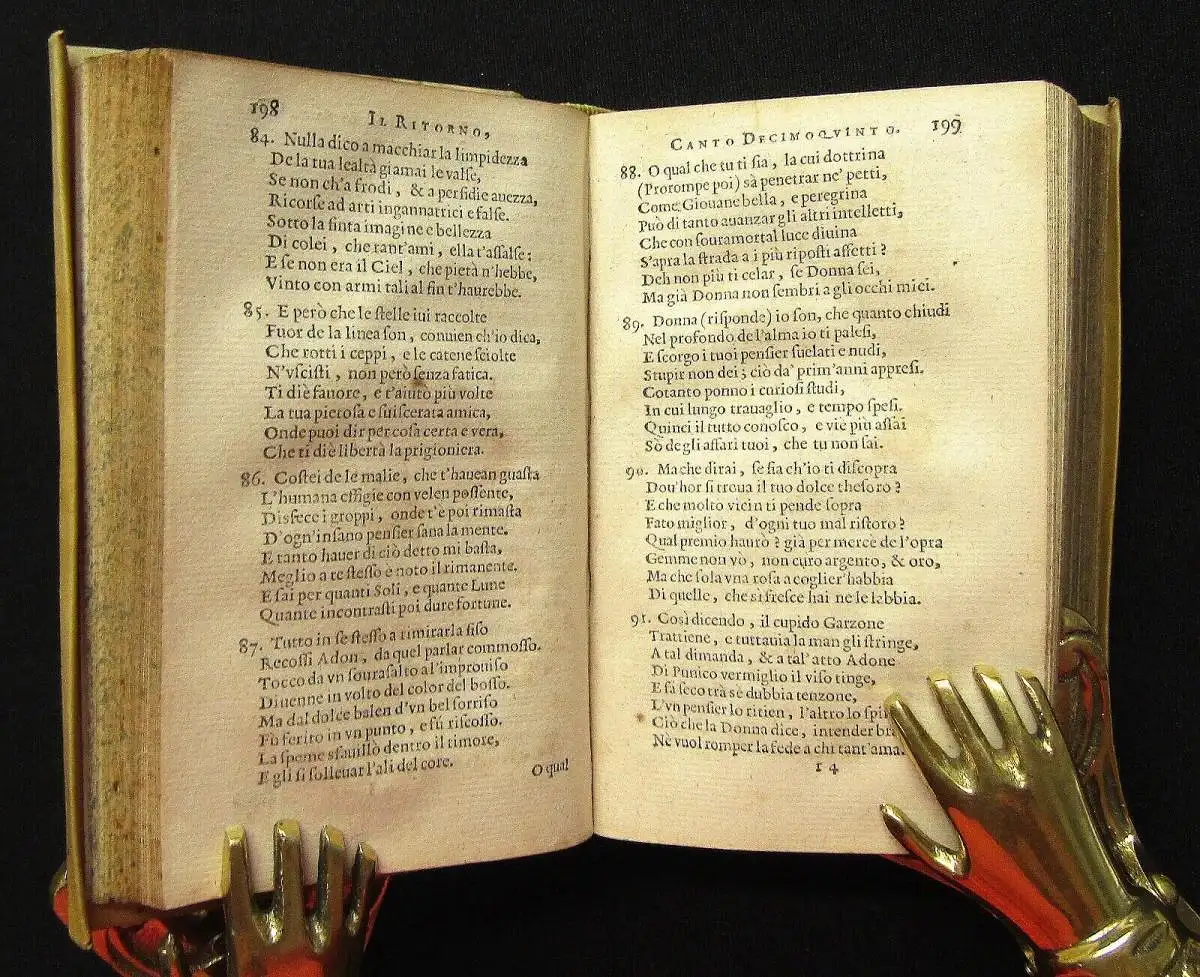 198
IL RITORNO,
84. Nulla dico a macchiar la limpidezza
De la tua lealtà giamai le valſe,
Se non ch'a frodi, & a perfidie auezza,
Ricorſe ad arti ingannatrici e falſe.
Sotto la finta imagine e bellezza
Di colei, che tant'ami, ella t'aſſalſe:
E ſe non era il Ciel, che pietà n'hebbe,
Vinto con armi tali al fin t'haurebbe.
85. E però che le ſtelle iui raccolte
Fuor de la linea ſon, conuien ch'io dica,
Che rotti i ceppi, e le catene ſciolte
N'vſciſti, non però ſenza fatica.
Ti diè fauore, e t'aiutò più volte
La tua pietoſa e ſuiſcerata amica,
Onde puoi dir per coſa certa e vera,
Che ti diè libertà la prigioniera.
86. Coſtei de le malie, che t'hauean guaſta
L'humana effigie con velen poſſente,
Disfece i groppi, onde t'è poi rimaſta
D'ogn'inſano penſier ſana la mente.
E tanto hauer di ciò detto mi baſta,
Meglio a te ſteſſo è noto il rimanente.
E ſai per quanti Soli, e quante Lune
Quante incontraſti poi dure fortune.
87. Tutto in ſe ſteſſo a rimirarla fiſo
Recoſſi Adon, da quel parlar commoſſo.
Tocco da vn ſouraſalto al'improuiſo
Diuenne in volto del color del boſſo.
Ma dal dolce balen d'vn bel ſorriſo
Fù ferito in vn punto, e fù riſcoſſo.
La ſpeme sfauillò dentro il timore,
E gli ſi ſolleuar l'ali del core.
O qual
CANTO DECIMOQVINTO. 199
88. O qual che tu ti ſia, la cui dottrina
(Prorompe poi) sà penetrar ne' petti,
Come Giouane bella, e peregrina
Può di tanto auanzar gli altri intelletti,
Che con ſouramortal luce diuina
S'apra la ſtrada a i più ripoſti affetti?
Deh non più ti celar, ſe Donna ſei,
Ma già Donna non ſembri a gli occhi miei.
89. Donna (riſponde) io ſon, che quanto chiudi
Nel profondo de l'alma io ti paleſi,
E ſcorgo i tuoi penſier ſuelati e nudi,
Stupir non dei; ciò da' prim'anni appreſi.
Cotanto ponno i curioſi ſtudi,
In cui lungo trauaglio, e tempo ſpeſi.
Quinci il tutto conoſco, e viè più aſſai
Sò de gli affari tuoi, che tu non ſai.
90. Ma che dirai, ſe fia ch'io ti diſcopra
Dou'hor ſi troua il tuo dolce theſoro?
E che molto vicin ti pende ſopra
Fato miglior, d'ogni tuo mal riſtoro?
Qual premio haurò? già per mercè de l'opra
Gemme non vò, non curo argento, & oro,
Ma che ſola vna roſa a coglier'habbia
Di quelle, che sì freſce hai ne le labbia.
91. Così dicendo, il cupido Garzone
Trattiene, e tuttauia la man gli ſtringe,
A tal dimanda, & a tal'atto Adone
Di Punico vermiglio il viſo tinge,
E fà ſeco trà sè dubbia tenzone,
L'vn penſier lo ritien, l'altro lo
Ciò che la Donna dice, intender
Nè vuol romper la fede a chi tant'ama.
I 4